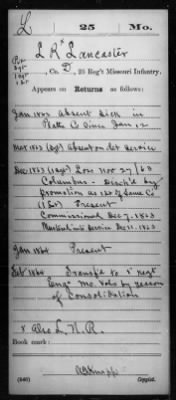 L 25 Mo.
L R x Lancaster
Pvt
Sgt
1 Sgt
1 Lt
, Co. F, 25 Reg't Missouri Infantry.
Appears on Returns as follows:
Jan 1863 Absent Sick in
Platte Co Since Jan 12
Mar 1863 (Sgt) Absent on Det Service
Dec 1863 (1 Sgt) Loss Nov 27/63
Columbus - Disch'd by
promotion as 1st Lt of Same Co
(1 Lt) Present
Commissioned Dec 7, 1863
Mustered into Service Dec 11, 1863
Jan 1864 Present
Feb 1864 Transf'd to 1" Regt
Eng" Mo. Vols by reason
of Consolidation
x Also L. N. R.
Book mark:
(546)
Copyist.